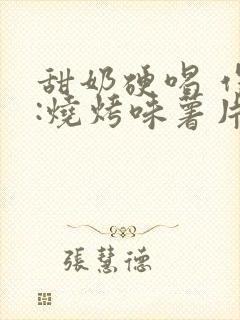 甜奶硬唱
:燒烤味薯片
張慧德